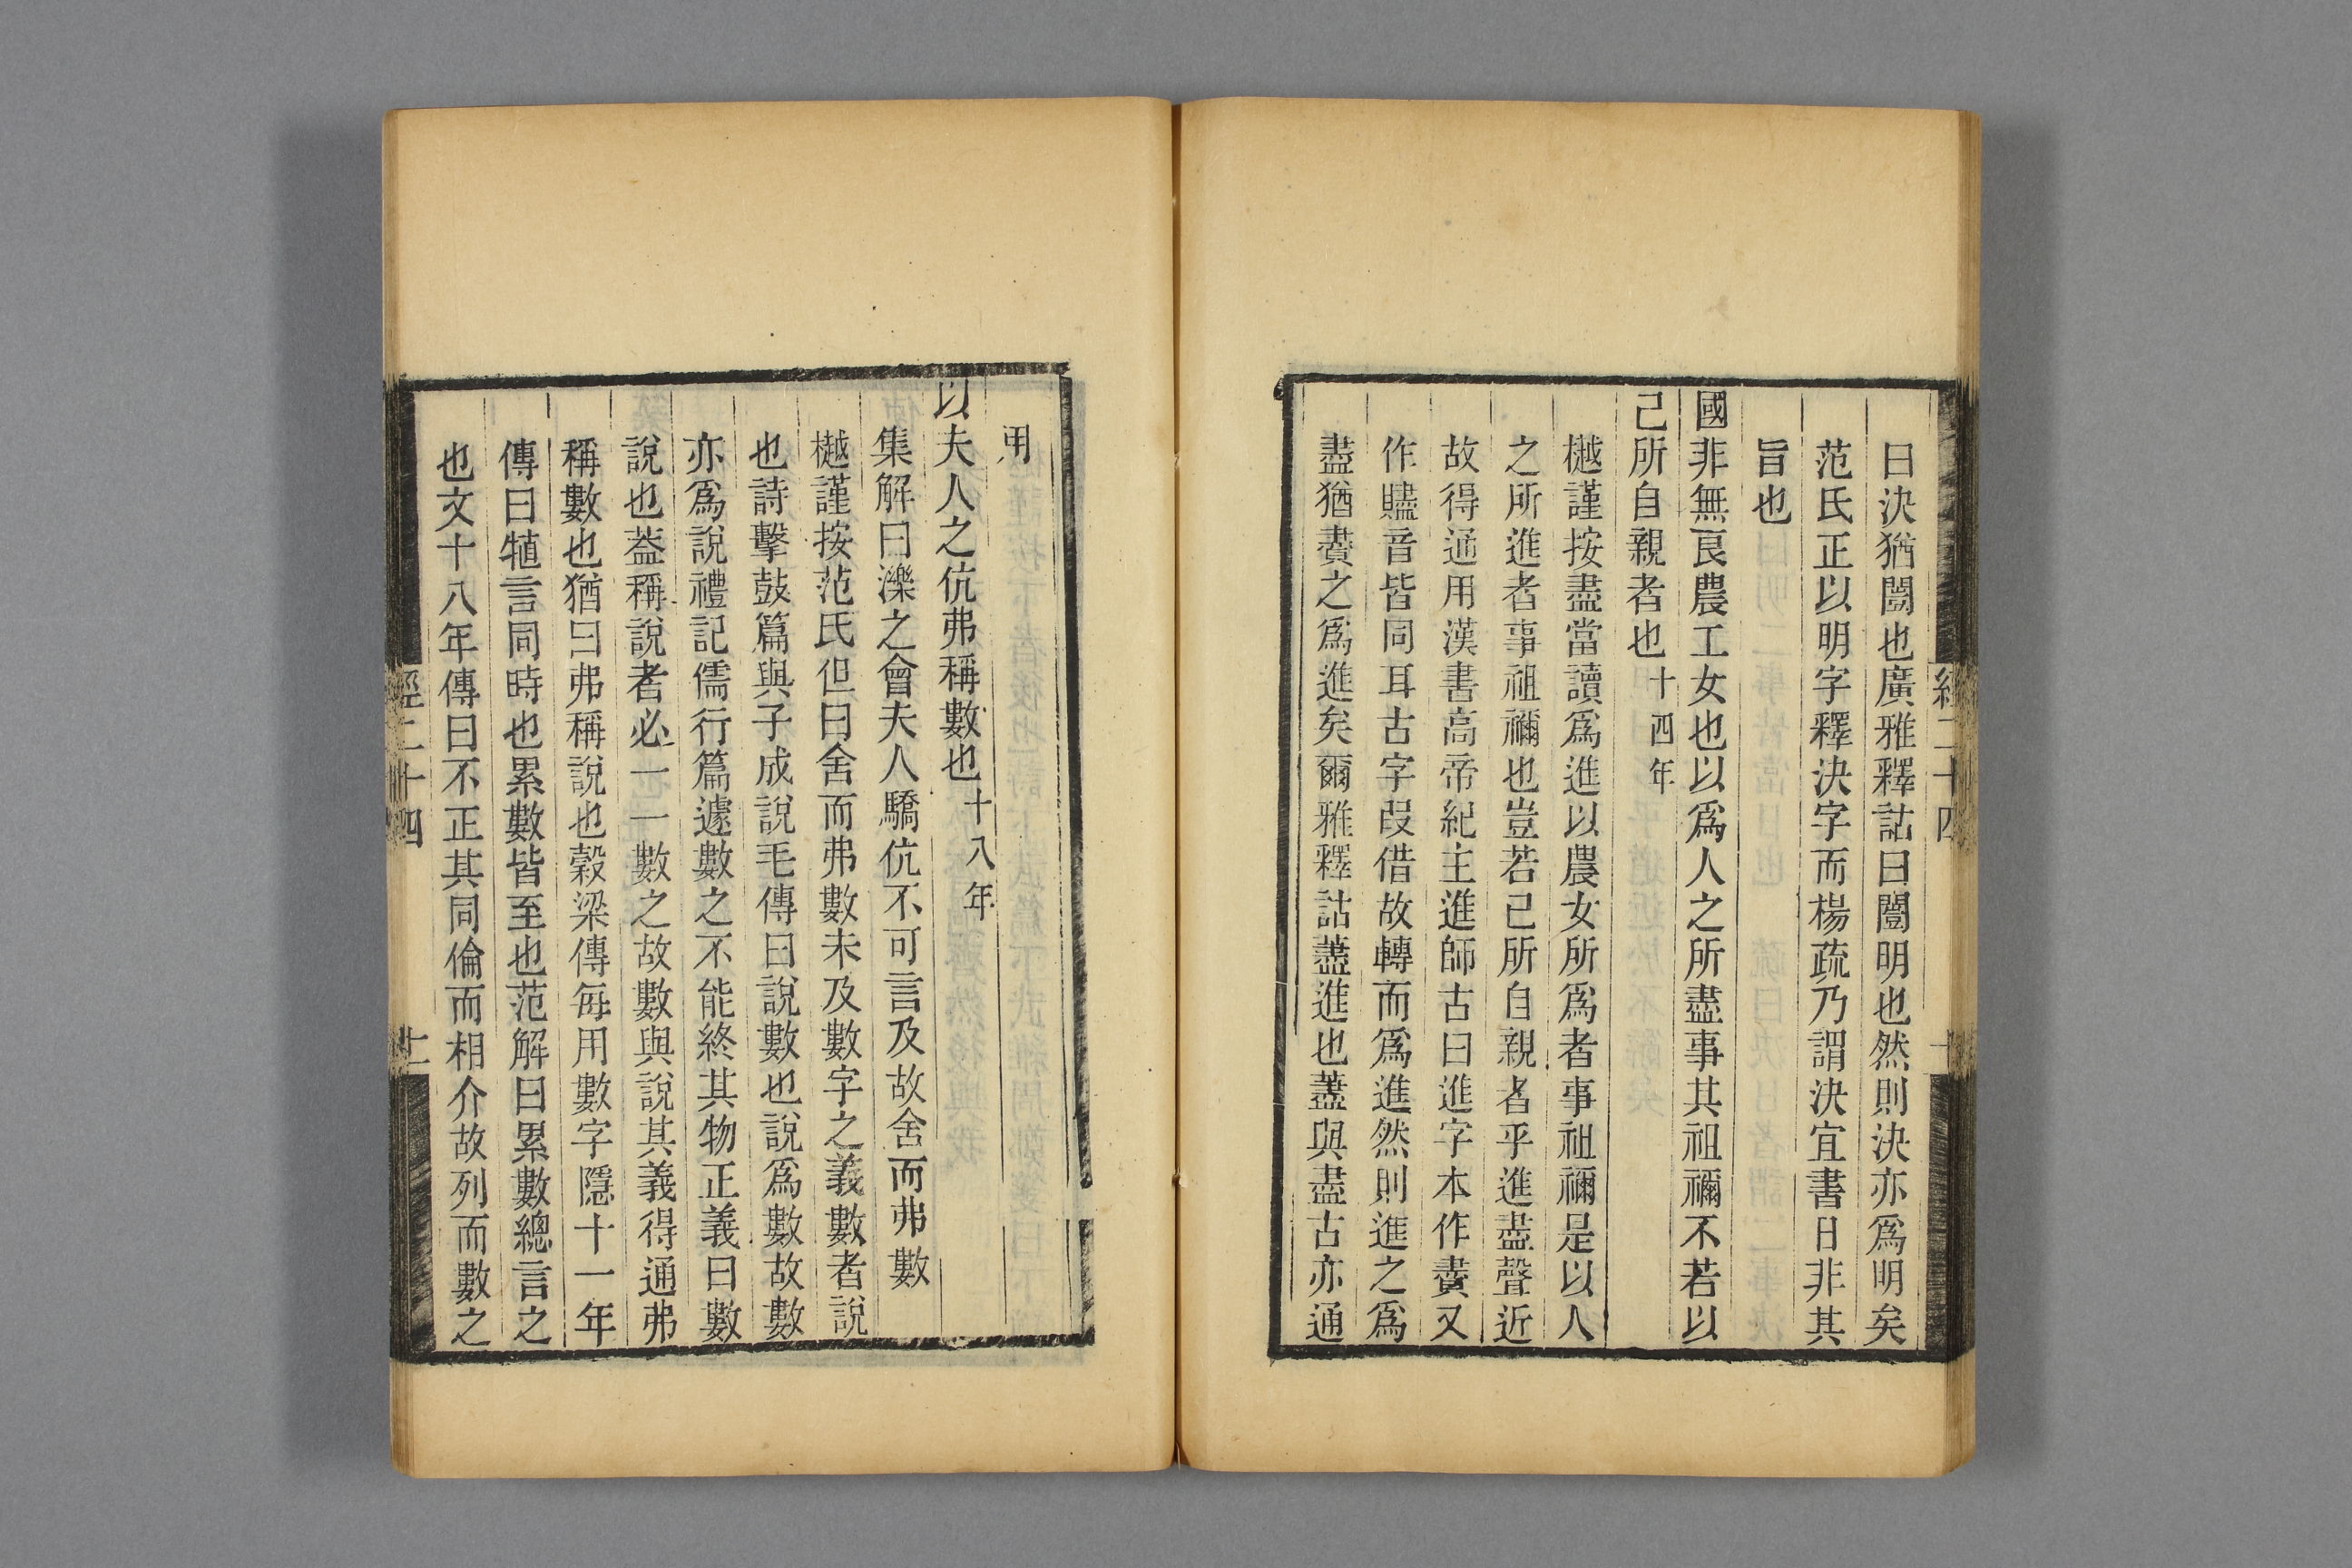 曰決猶闓也廣雅釋詁曰闓明也然則決亦爲明矣
范氏正以明字釋決字而楊疏乃謂決宜書日非其
旨也
國非無良農工女也以爲人之所盡事其祖禰不若以
己所自親者也十四年
樾謹按盡當讀爲進以農女所爲者事祖禰是以人
之所進者事祖禰也豈若己所自親者乎進盡聲近
故得通用漢書高帝紀主進師古曰進字本作賮又
作贐音皆同耳古字叚借故轉而爲進然則進之爲
盡猶賮之爲進矣爾雅釋詁藎進也藎與盡古亦通
用
以夫人之伉弗稱數也十八年
集解曰濼之會夫人驕伉不可言及故舍而弗數
樾謹按范氏但曰舍而弗數未及數字之義數者說
也詩擊鼓篇與子成說毛傳曰說數也說爲數故數
亦爲說禮記儒行篇遽數之不能終其物正義曰數
說也葢稱說者必一一數之故數與說其義得通弗
稱數也猶曰弗稱說也穀梁傳每用數字隱十一年
傳曰犆言同時也累數皆至也范解曰累數總言之
也文十八年傳曰不正其同倫而相介故列而數之
經二十四
十一